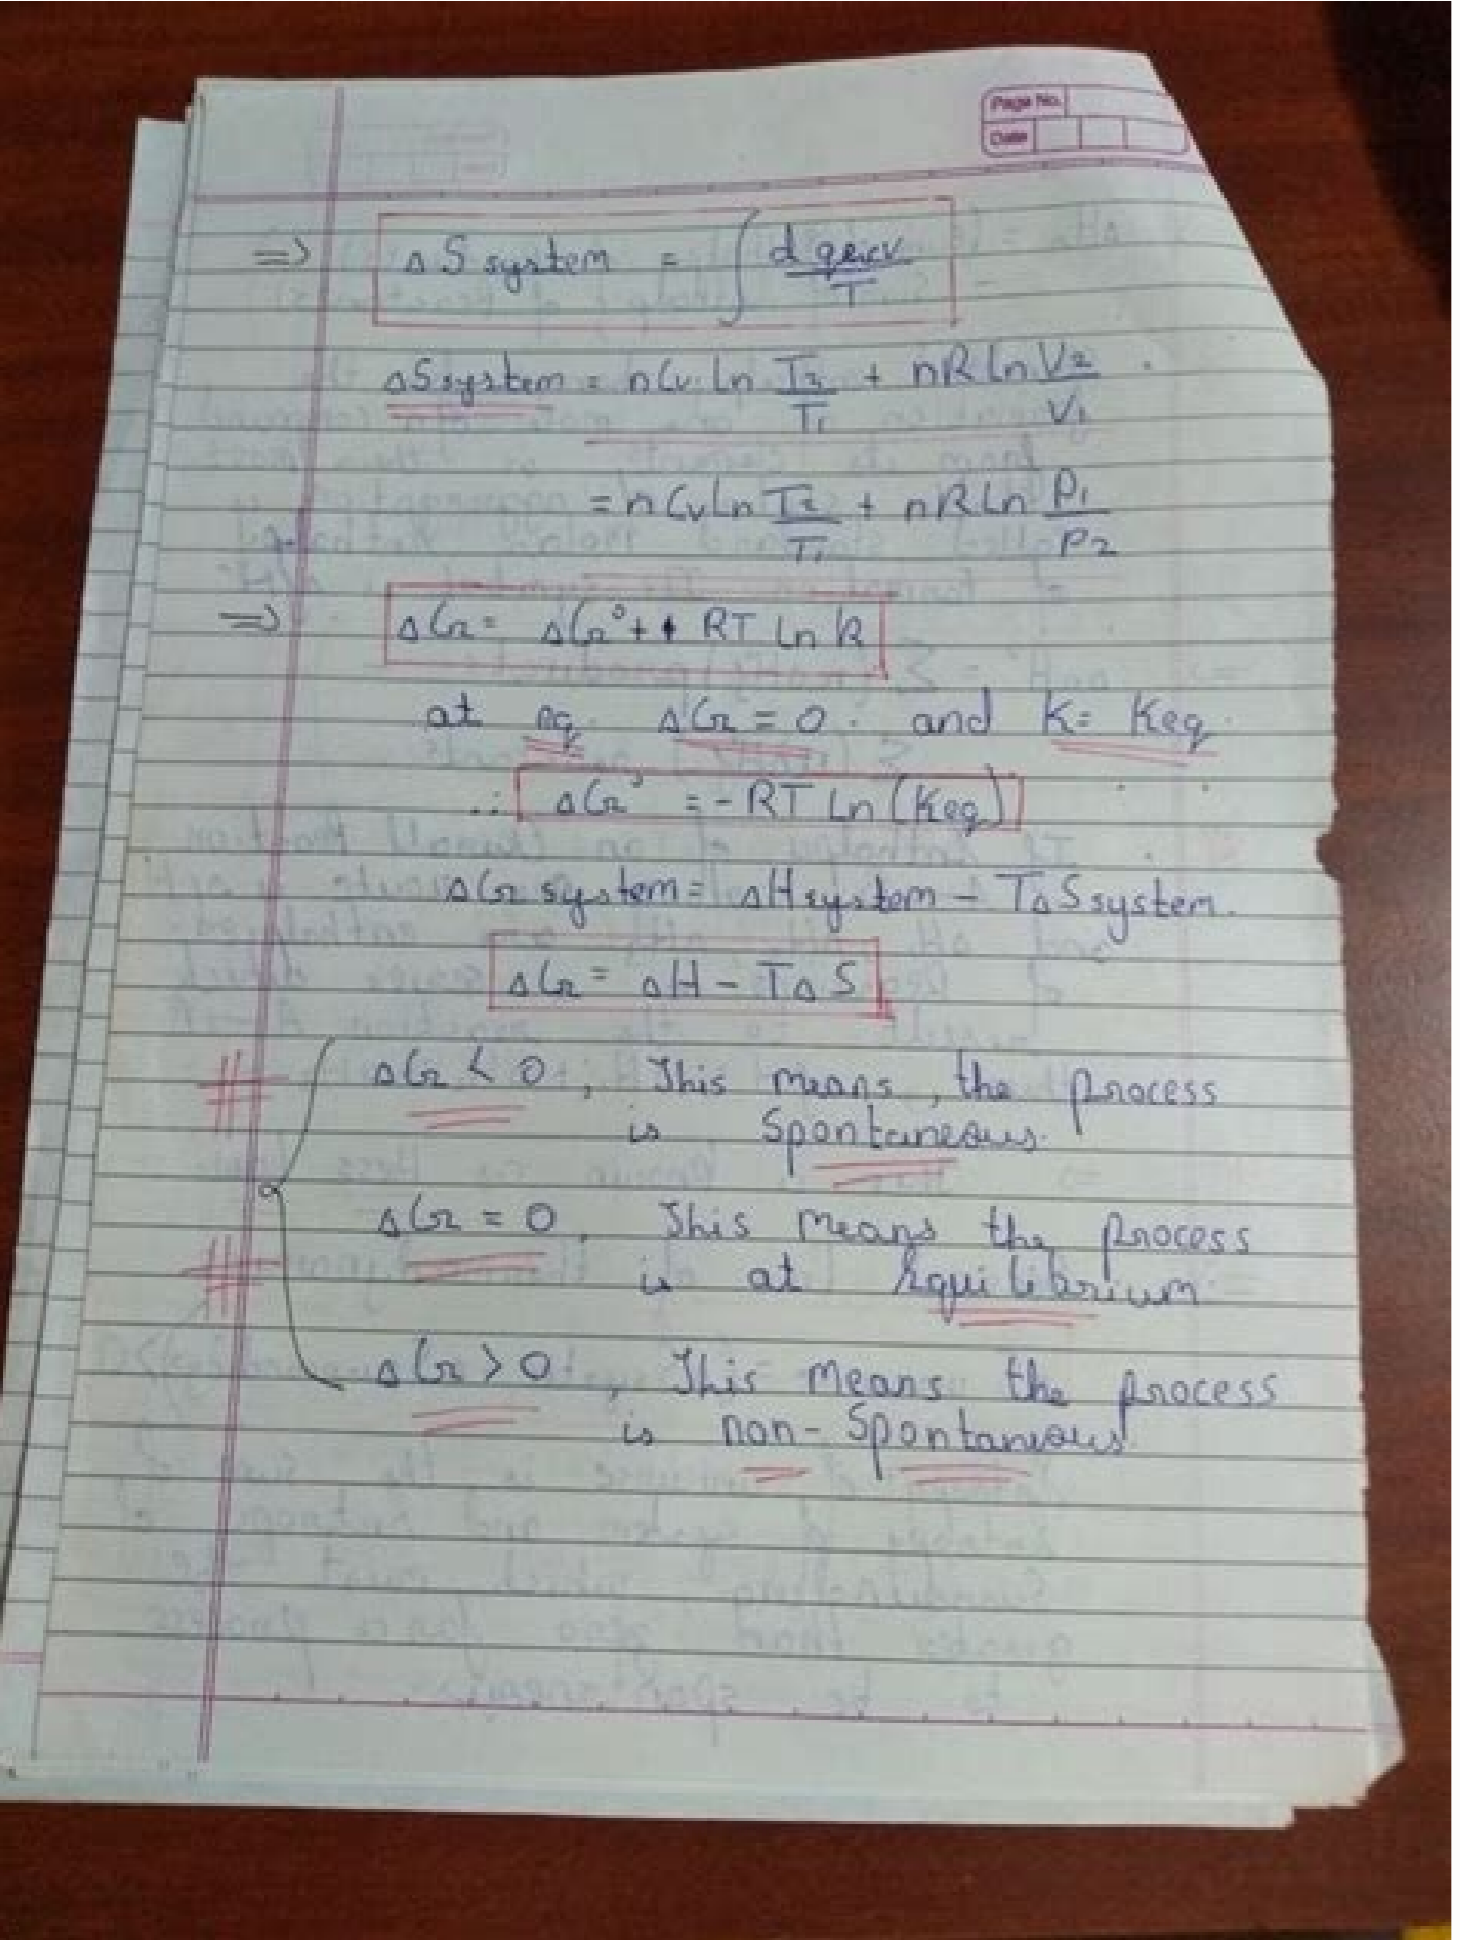 Page No.
Date
=> ΔS system = ∫ d qrev / T
ΔS system = nCv ln T2/T1 + nR ln V2/V1
= nCv ln T2/T1 + nR ln P1/P2
=> ΔG = ΔG° + + RT ln k
at eq. ΔG = 0. and K = Keq.
∴ ΔG° = - RT ln (Keq)
ΔG system = ΔH system - TΔS system.
ΔG = ΔH - TΔS
ΔG < 0, This means, the process
is Spontaneous.
ΔG = 0, This means the process
is at Equilibrium
ΔG > 0, This means the process
is non-Spontaneous